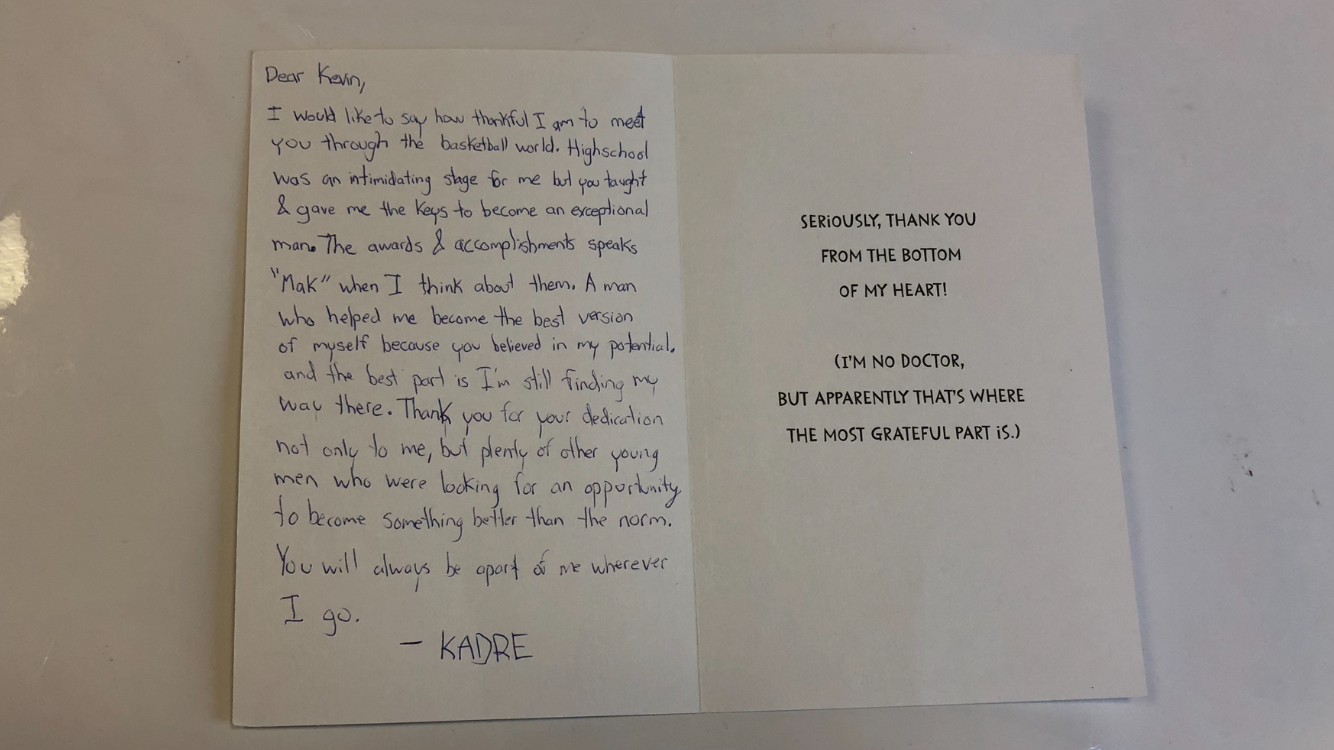 Dear Kevin,
I would like to say how thankful I am to meet
you through the basketball world. Highschool
was an intimidating stage for me but you taught
& gave me the keys to become an exceptional
man. The awards & accomplishments speaks
"Mak" when I think about them. A man
who helped me become the best version
of myself because you believed in my potential.
and the best part is I'm still finding my
way there. Thank you for your dedication
not only to me, but plenty of other young
men who were looking for an opportunity
to become something better than the norm.
You will always be apart of me wherever
I go.
— KADRE
SERiOUSLY, THANK YOU
FROM THE BOTTOM
OF MY HEART!
(I'M NO DOCTOR,
BUT APPARENTLY THAT'S WHERE
THE MOST GRATEFUL PART iS.)